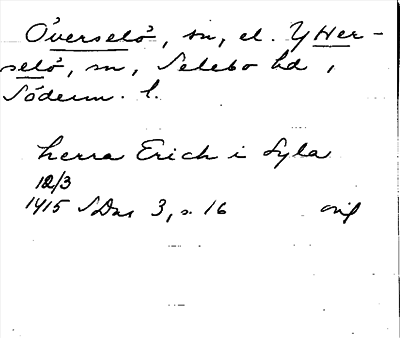 Överselö, sn, el. Ytter-
selö, sn, Selebo hd,
Söderm. l.
herra Erich i Syla
12/3
1415 SDns 3, s. 16 orig